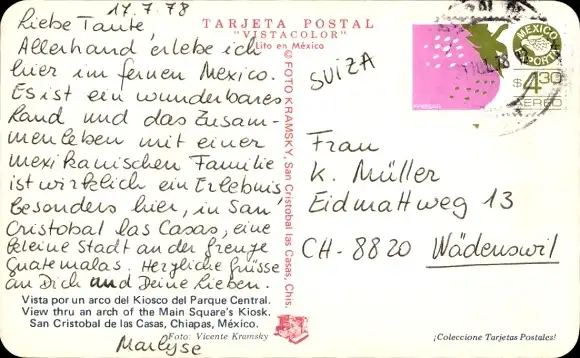 17.7.78
Liebe Tante,
Allerhand erlebe ich
hier im fernen Mexico.
Es ist ein wunderbares
Land und das Zusam-
menleben mit einer
mexikanischen Familie
ist wirklich ein Erlebnis,
besonders hier, in San
Cristobal las Casas, eine
kleine Stadt an der Grenze
Guatemalas. Herzliche Grüsse
an Dich und Deine Lieben.
Marlyse
TARJETA POSTAL
"VISTACOLOR"
Lito en México
© FOTO KRAMSKY, San Cristobal las Casas, Chis.
SUIZA
MEXICO
EXPORTA
$4.30
AEREO
FRESAS
Frau
K. Müller
Eidmattweg 13
CH-8820 Wädenswil
Vista por un arco del Kiosco del Parque Central.
View thru an arch of the Main Square's Kiosk.
San Cristobal de las Casas, Chiapas, México.
Foto: Vicente Kramsky
¡Coleccione Tarjetas Postales!